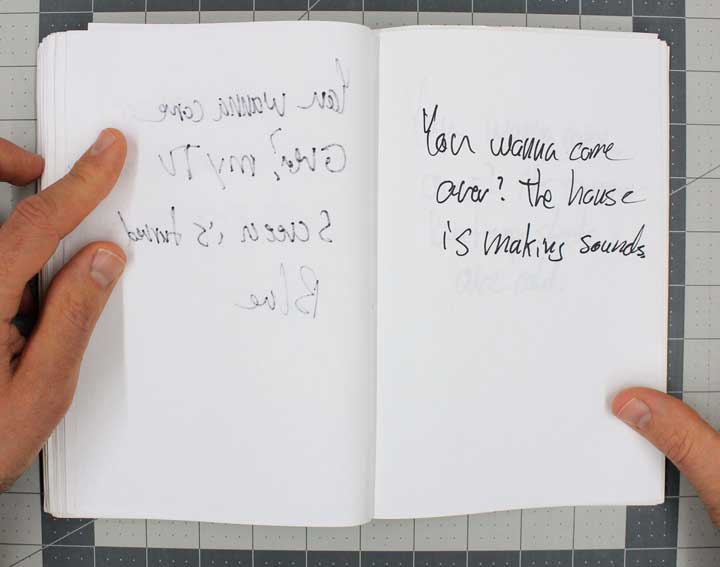 You wanna come
over? my TV
Screen is turned
Blue
You wanna come
over? the house
is making sounds